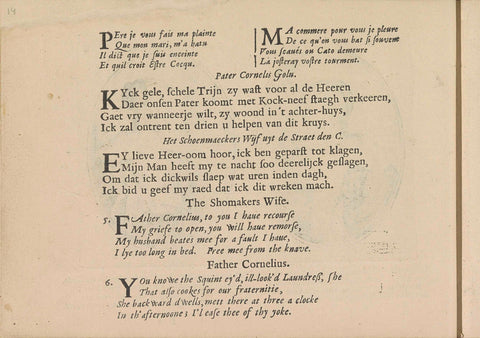 14
PEre je vous fais ma plainte
Que mon mari, m'a batu
Il dict que je suis enceinte
Et quil croit Estre Cocqu.
MA commere pour vous je pleure
De ce qu'en vous bat si souvent
Vous scaués ou Cato demeure
La josteray vostre tourment.
Pater Cornelis Golu.
KYck gele, schele Trijn zy wast voor al de Heeren
Daer onsen Pater koomt met Kock-neef staegh verkeeren,
Gaet vry wanneerje wilt, zy woond in't achter-huys,
Ick zal ontrent ten drien u helpen van dit kruys.
Het Schoenmaeckers Wijf uyt de Straet den C.
EY lieve Heer-oom hoor, ick ben geparst tot klagen,
Mijn Man heeft my te nacht soo deerelijck geslagen,
Om dat ick dickwils slaep wat uren inden dagh,
Ick bid u geef my raed dat ick dit wreken mach.
The Shomakers Wife.
5. FAther Cornelius, to you I haue recourse
My griefe to open, you will haue remorse,
My husband beates mee for a fault I haue,
I lye too long in bed. Free mee from the knave.
Father Cornelius.
6. YOu knowe the Squint ey'd, ill-look'd Laundreß, she
That also cookes for our fraternitie,
She backward dwells, mett there at three a clocke
In th'afternoone; I'l ease thee of thy yoke.